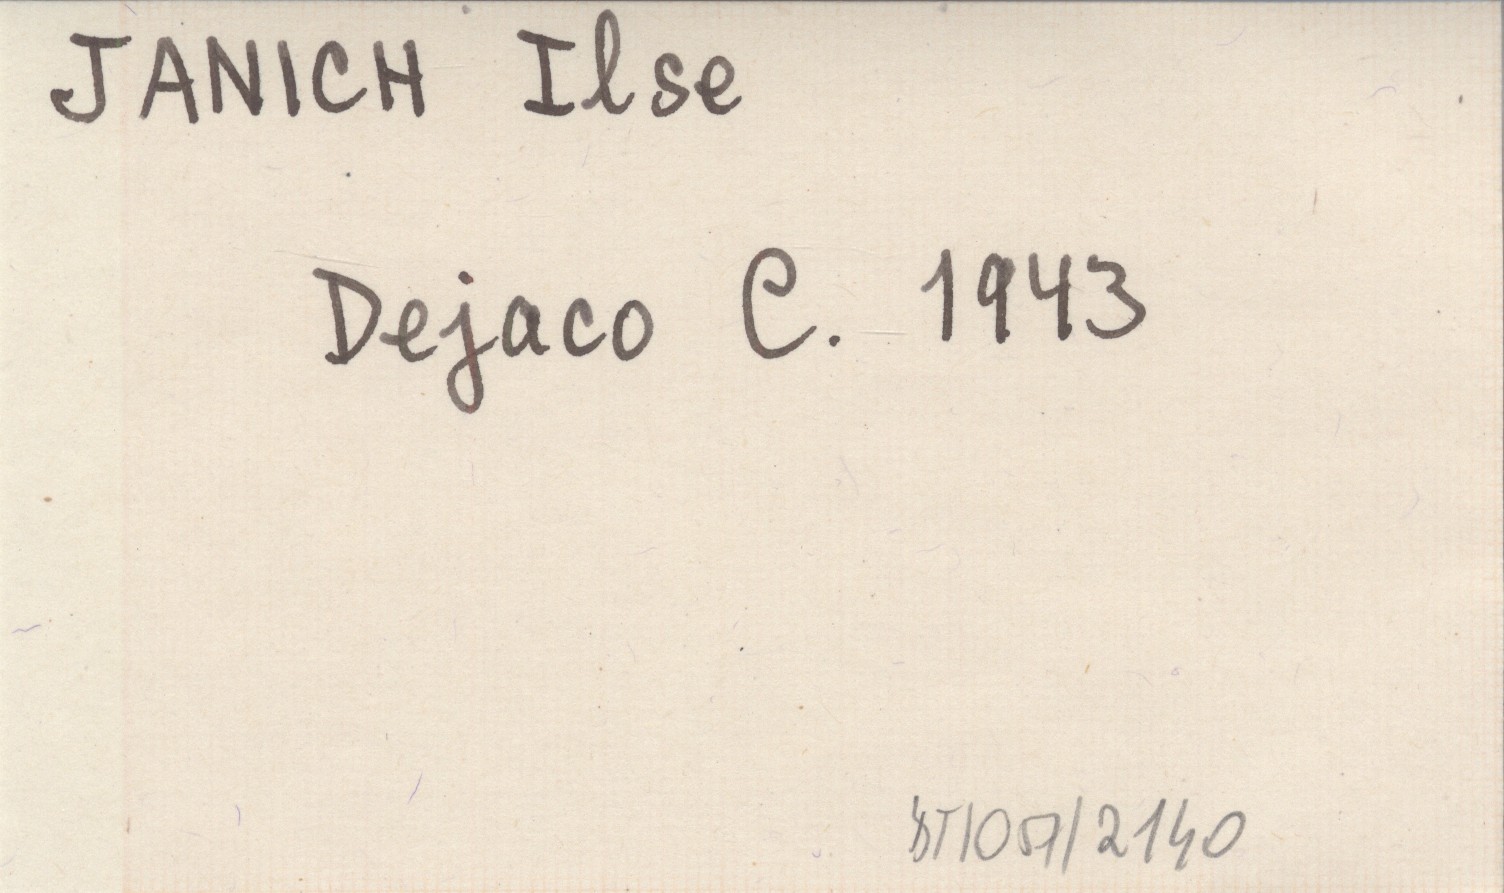 JANICH Ilse
Dejaco C. 1943
2140